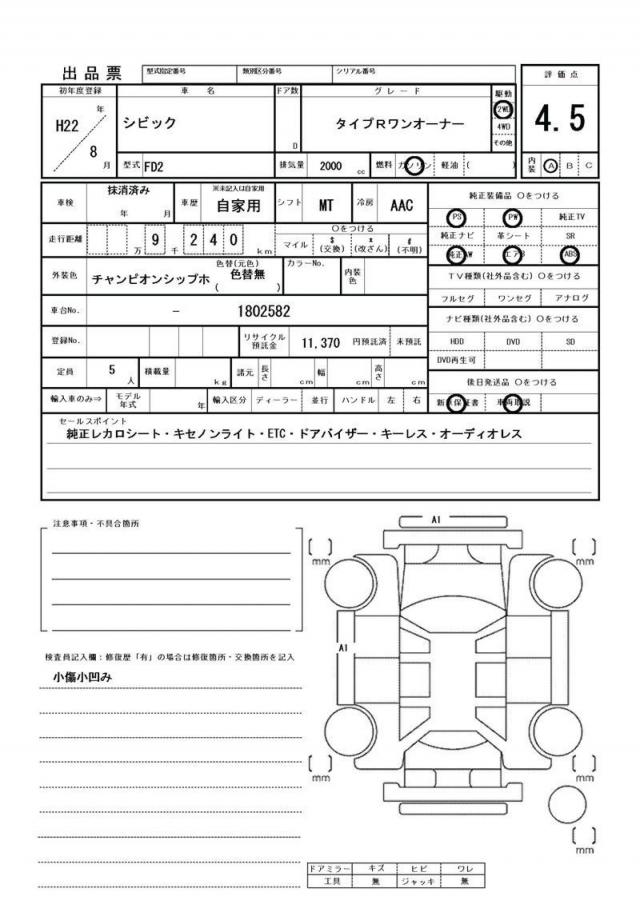 出品票 型式指定番号 類別区分番号 シリアル番号
評価点
初年度登録 車名 ドア数 グレード 駆動
H22 年 シビック タイプRワンオーナー 2WD 4.5
4WD
8 月 D その他
型式 FD2 排気量 2000 cc 燃料 ガソリン 軽油 ( ) 内装 A B C
車検 抹消済み 年 月 車歴 ※未記入は自家用 自家用 シフト MT 冷房 AAC 純正装備品 〇をつける
PS PW 純正TV
走行距離 万 9 千 2 4 0 km 〇をつける
マイル $ (交換) x (改ざん) # (不明) 純正ナビ 革シート SR
純正AW エアB ABS
外装色 チャンピオンシップホ 色替(元色) 色替無 ( ) カラーNo. 内装色
TV種類(社外品含む) 〇をつける
フルセグ ワンセグ アナログ
車台No. - 1802582
ナビ種類(社外品含む) 〇をつける
登録No. リサイクル預託金 11,370 円預託済 未預託 HDD DVD SD
DVD再生可
定員 5 人 積載量 kg 諸元 長さ cm 幅 cm 高さ cm
後日発送品 〇をつける
輸入車のみ⇒ モデル年式 年 輸入区分 ディーラー 並行 ハンドル 左 右 新車保証書 車両取説
セールスポイント
純正レカロシート・キセノンライト・ETC・ドアバイザー・キーレス・オーディオレス
注意事項・不具合箇所
A1
mm
mm
A1
検査員記入欄:修復歴「有」の場合は修復箇所・交換箇所を記入
小傷小凹み
mm
mm
mm
ドアミラー キズ ヒビ ワレ
工具 無 ジャッキ 無